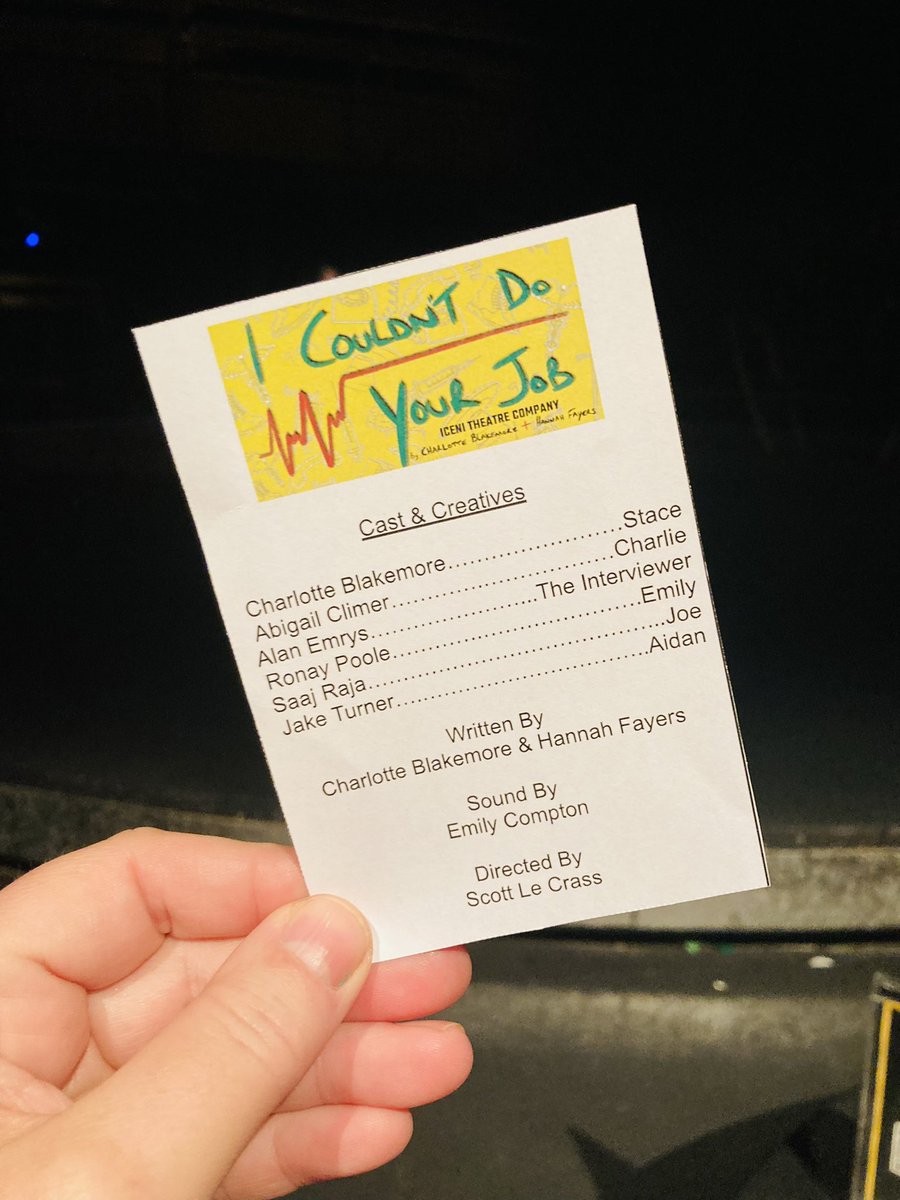 I COULDN'T DO
YOUR JOB
ICENI THEATRE COMPANY
by CHARLOTTE BLAKEMORE + HANNAH FAYERS
Cast & Creatives
Charlotte Blakemore……………………Stace
Abigail Climer……………………………Charlie
Alan Emrys……………………The Interviewer
Ronay Poole………………………………Emily
Saaj Raja……………………………………Joe
Jake Turner…………………………………Aidan
Written By
Charlotte Blakemore & Hannah Fayers
Sound By
Emily Compton
Directed By
Scott Le Crass